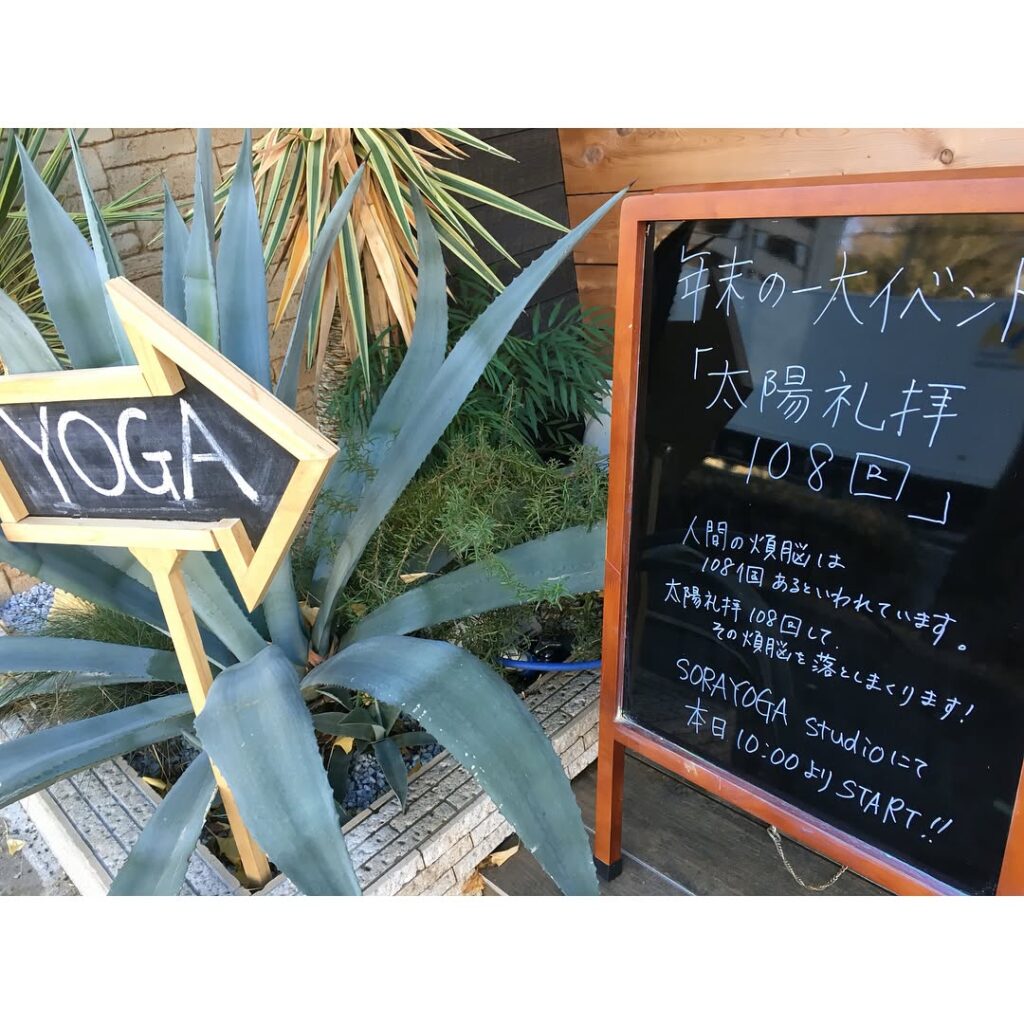 YOGA
年末の一大イベント
「太陽礼拝
108回」
人間の煩脳は
108個あるといわれています。
太陽礼拝108回して、
その煩脳を落としまくります!
SORAYOGA studioにて
本日10:00よりSTART!!